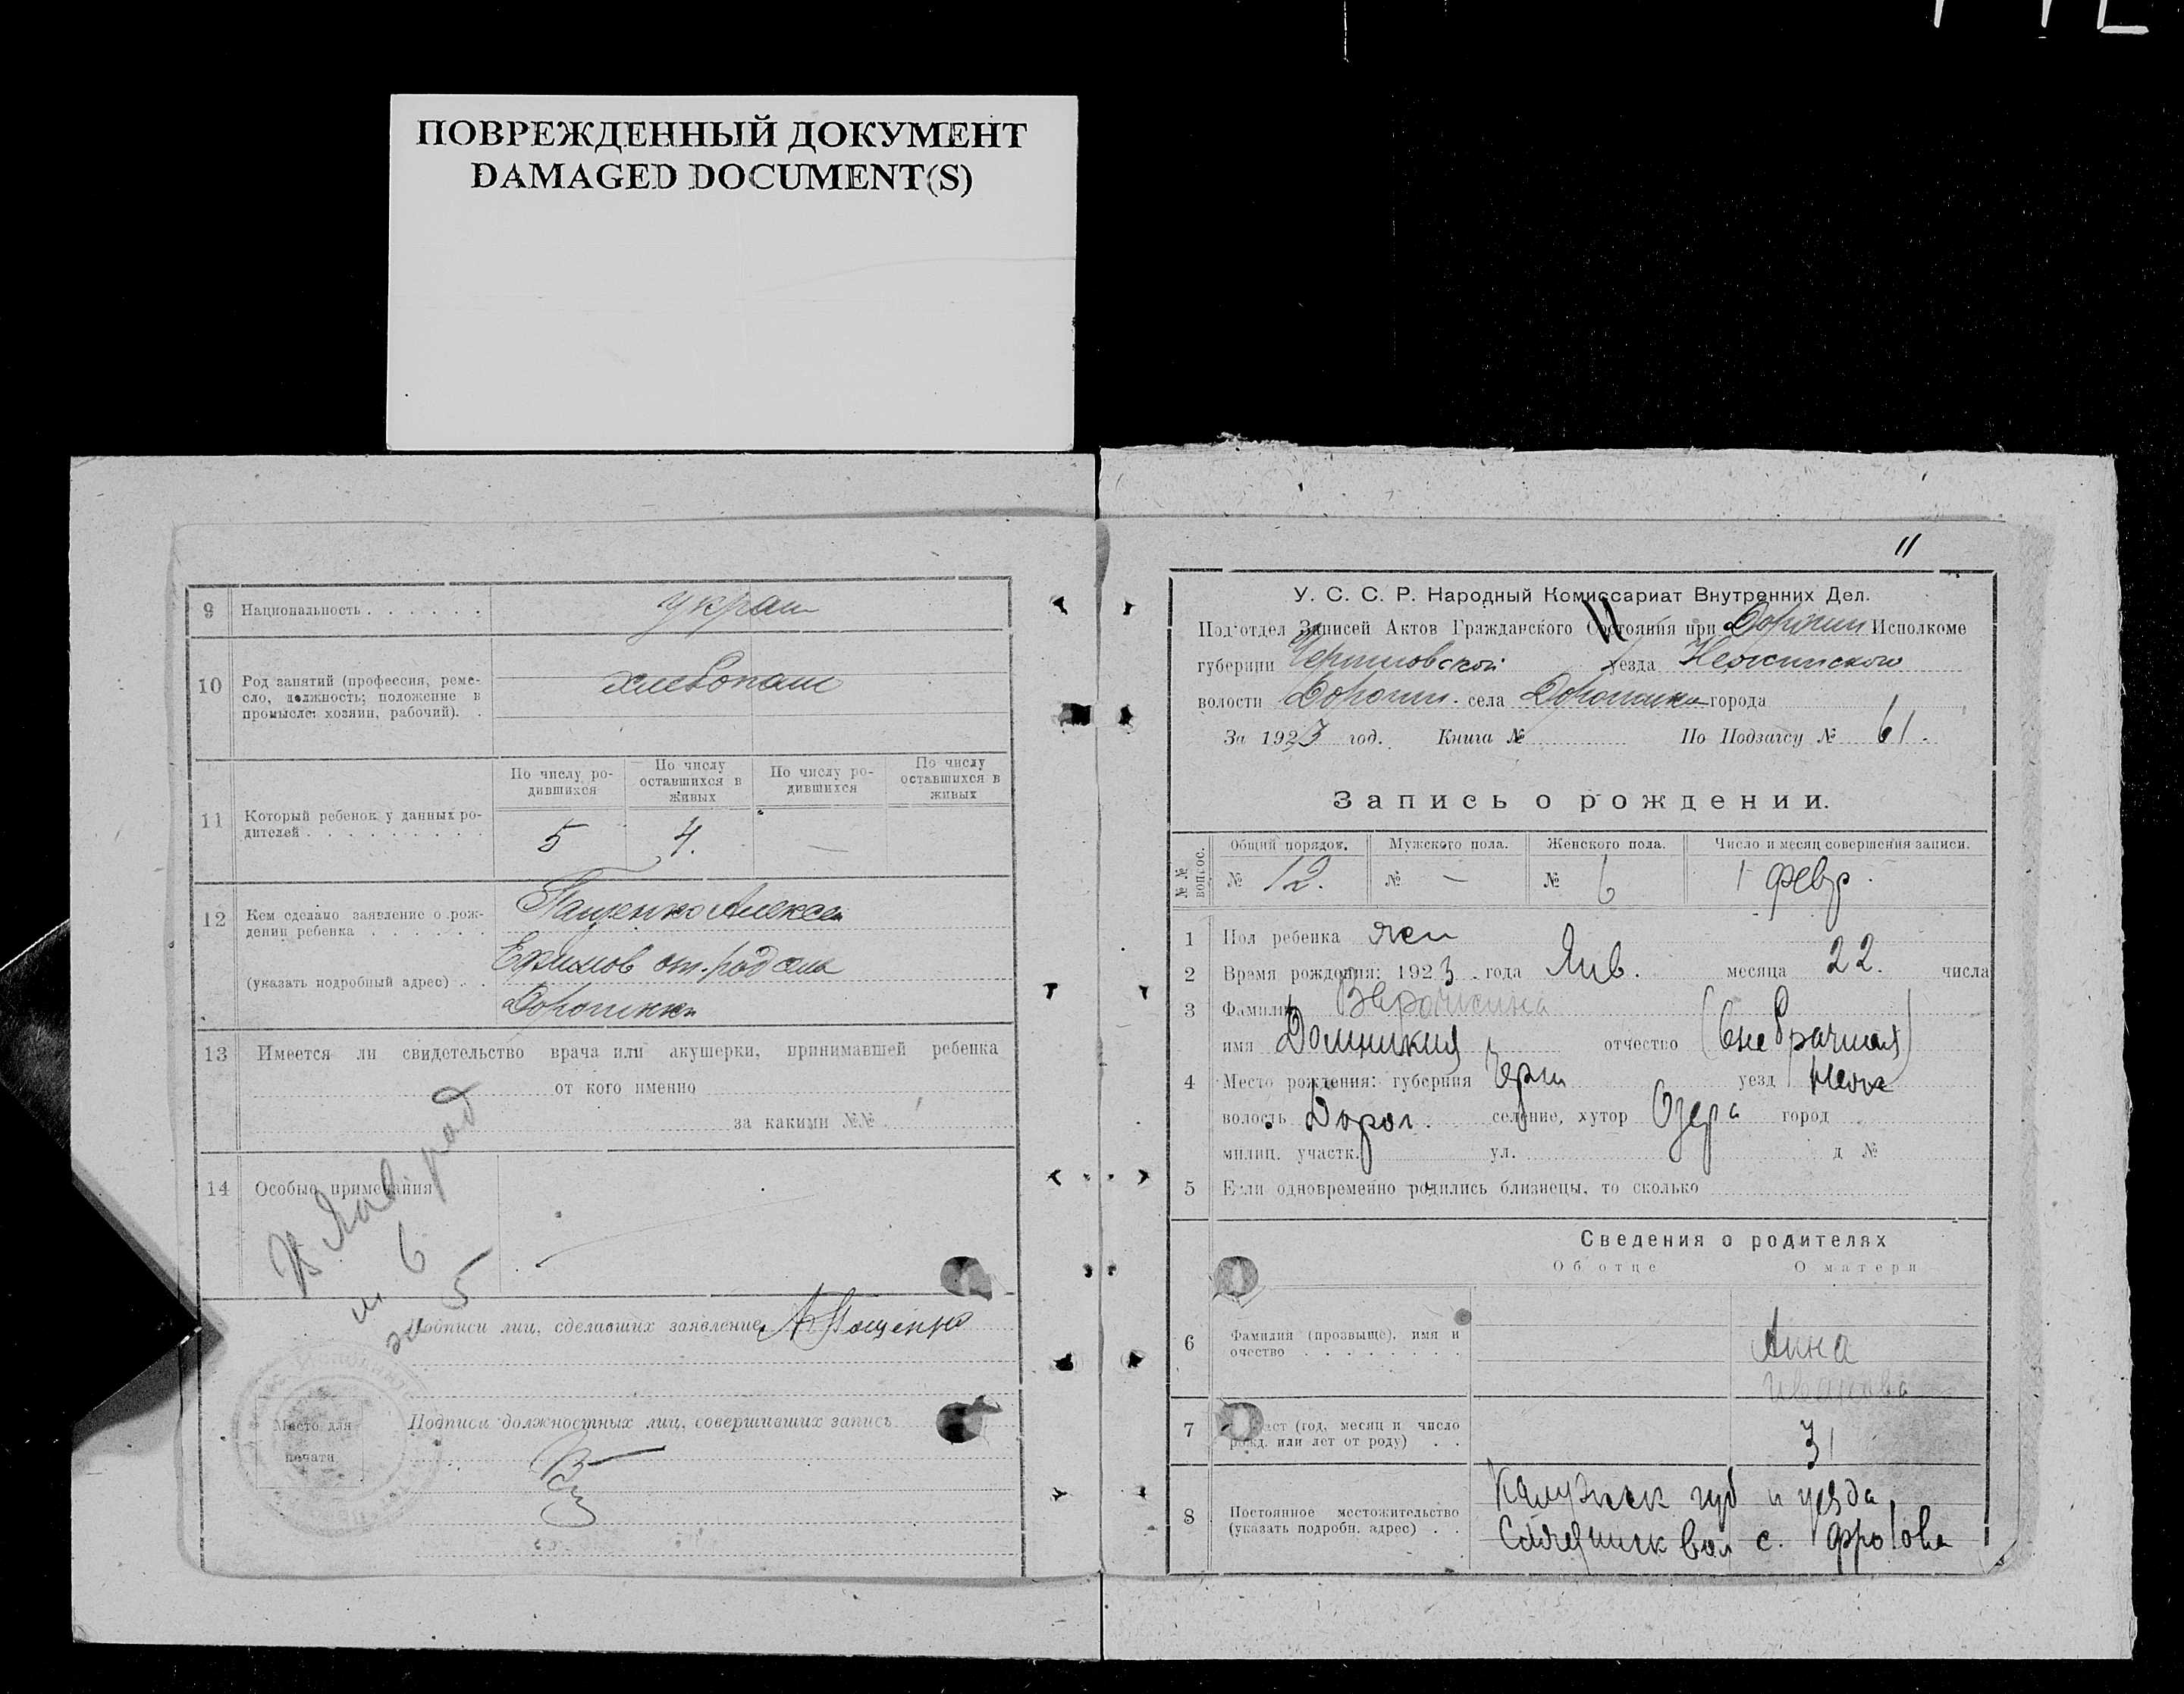 ПОВРЕЖДЕННЫЙ ДОКУМЕНТ
DAMAGED DOCUMENT(S)
9 Национальность укра
10 Род занятий (профессия, реме-
сло, должность; положение в
промысле: хозяин, рабочий). хлебопаш
По числу ро-
дившихся
По числу
оставшихся в
живых
По числу ро-
дившихся
По числу
оставшихся в
живых
11 Который ребенок у данных ро-
дителей 5 4. —
12 Кем сделано заявление о рож-
дении ребенка Пащенко Алексей
Ефимов
(указать подробный адрес)
13 Имеется ли свидетельство врача или акушерки, принимавшей ребенка
от кого именно
за какими №№
14 Особые примечания
6
5
Подписи лиц, сделавших заявление А Пащенко
Место для
печати
Подписи должностных лиц, совершивших запись
11
У. С. С. Р. Народный Комиссариат Внутренних Дел.
Под'отдел Записей Актов Гражданского Состояния при Дорогин Исполкоме
губернии Черниговской уезда Нежинского
волости Дорогин. села Дорогинки города
За 1923 год. Книга № По Подзагсу № 61.
Запись о рождении.
№ № вопрос.
Общий порядок. Мужского пола. Женского пола. Число и месяц совершения записи.
№ 12. № — № 6 1 февр.
1 Пол ребенка жен
2 Время рождения: 1923 года Янв. месяца 22. числа
3 Фамилия
имя Домникия отчество (внебрачная)
4 Место рождения: губерния Черн уезд Неж
волость Дорог. селение, хутор Озера город
милиц. участк. ул. д №
5 Если одновременно родились близнецы, то сколько
Сведения о родителях
Об отце О матери
6 Фамилия (прозвище), имя и
очество Анна
Иванова
7 Возраст (год, месяц и число
рожд. или лет от роду) 31
8 Постоянное местожительство
(указать подробн. адрес) Калужск губ и уезда
вол с.